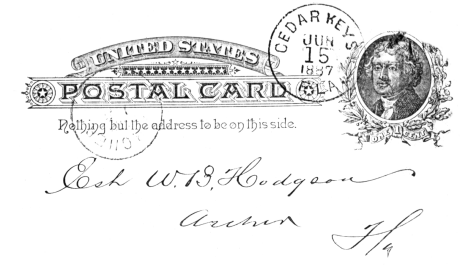 UNITED STATES
POSTAL CARD
Nothing but the address to be on this side.
CEDAR KEYS
JUN
15
1887
FLA
W. B. Hodgson
Archer
Fla